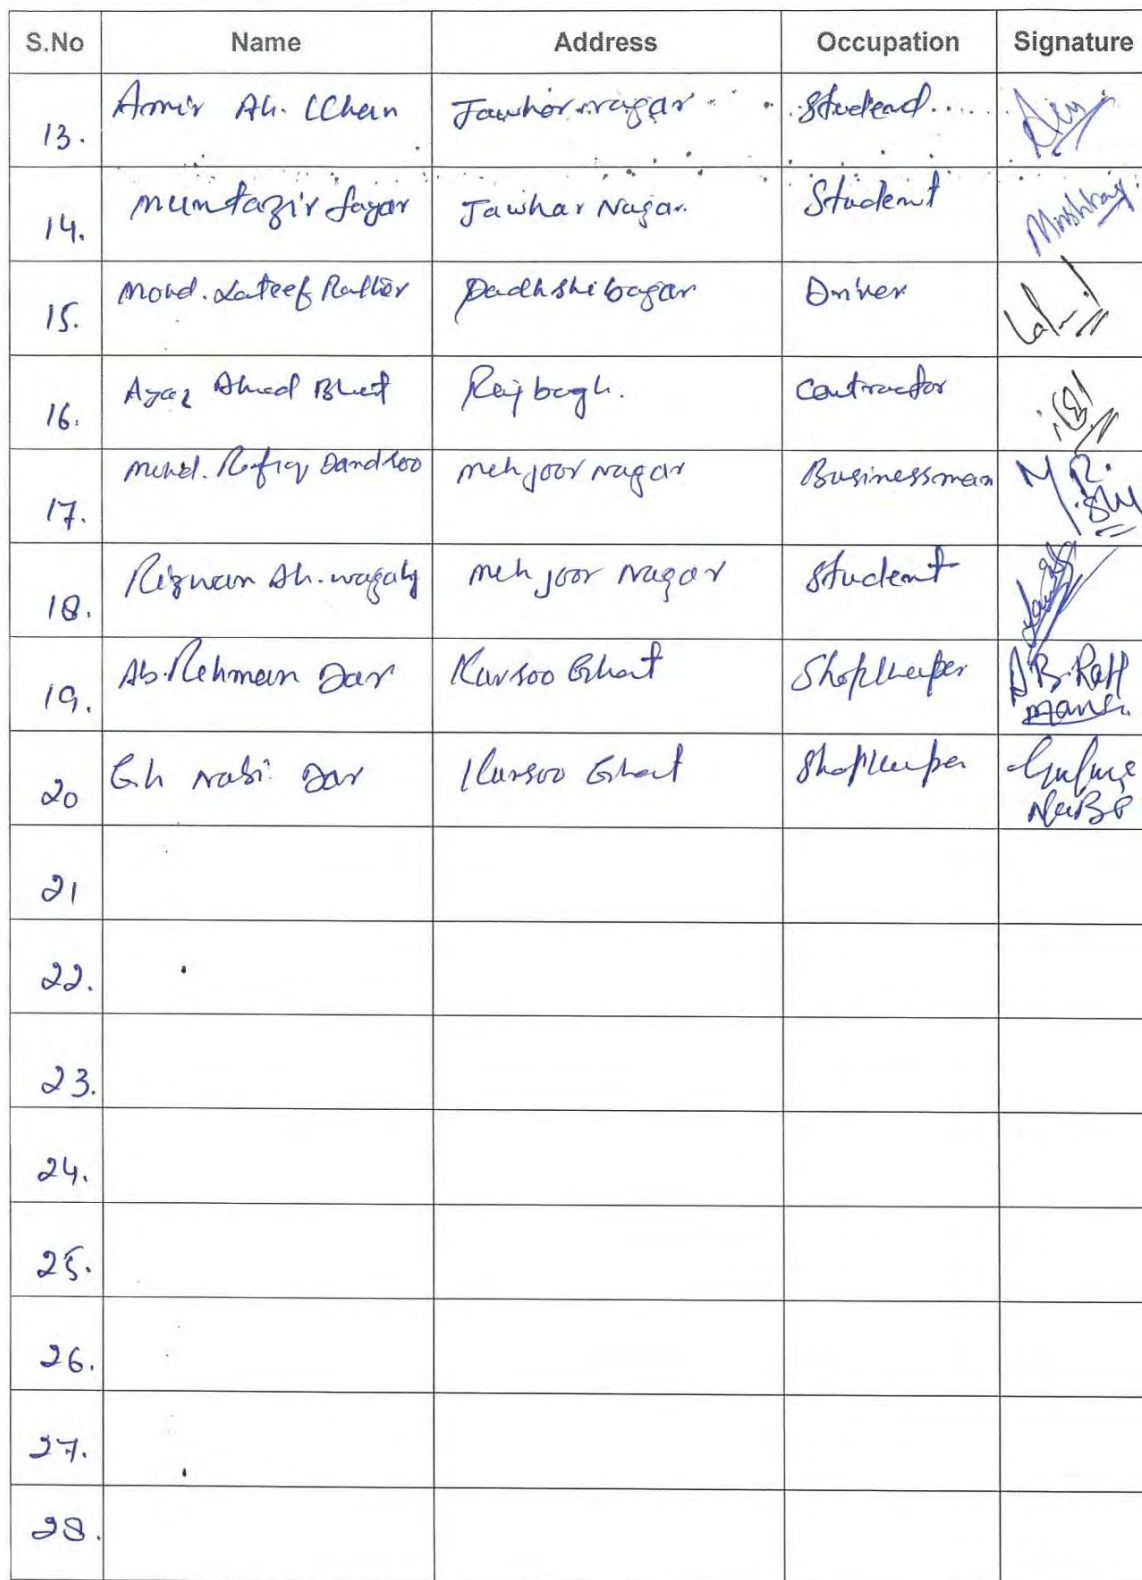 S.No Name Address Occupation Signature
13. Amir Ah. Khan Jawhar nagar Student
14. Muntazir Sagar Jawhar Nagar. Student
15. Mohd. Lateef Rather Padhshibagar Driver
16. Ayaz Ahmad Bhat Rajbagh. Contractor
17. Mohd. Rafiq Dandroo mehjoor nagar Businessman M.R.
18. Rizwan Ah. wagay meh joor nagar Student
19. Ab. Rehman Dar Kursoo Ghat Shopkeeper AB. Reh
man
20 Gh Nabi Dar Kursoo Ghat Shopkeeper
21
22.
23.
24.
25.
26.
27.
28.